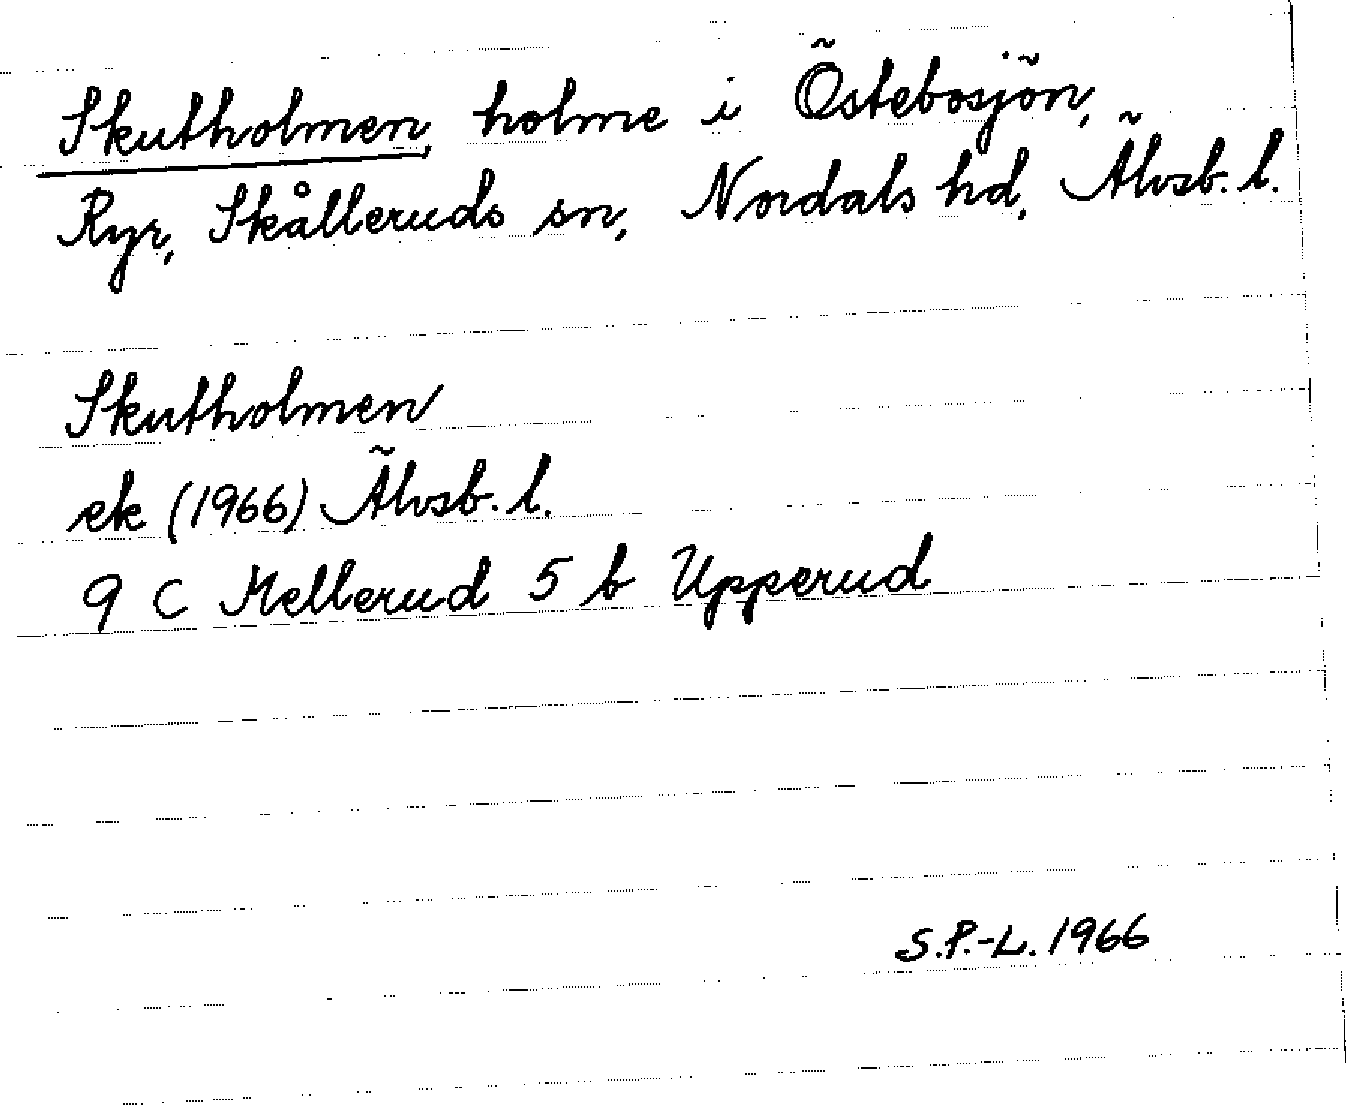 Skutholmen, holme i Östebosjön,
Ryr, Skålleruds sn, Nordals hd, Älvsb. l.
Skutholmen
ek (1966) Älvsb. l.
9 C Mellerud 5 b Upperud
S.P.-L. 1966